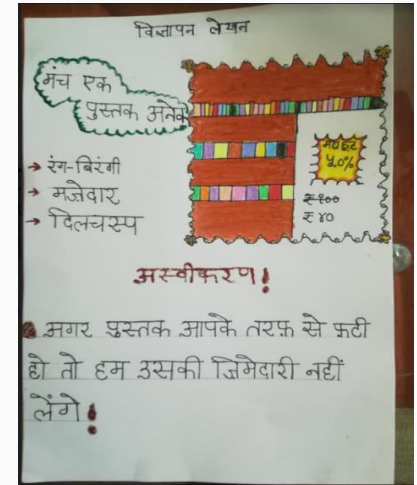 विज्ञापन लेखन
मंच एक
पुस्तक अनेक
→ रंग-बिरंगी
→ मजेदार
→ दिलचस्प
छूट
५०%
₹१००
₹४०
अस्वीकरण!
अगर पुस्तक आपके तरफ़ से फ़टी
हो तो हम उसकी जिमेदारी नहीं
लेंगे!